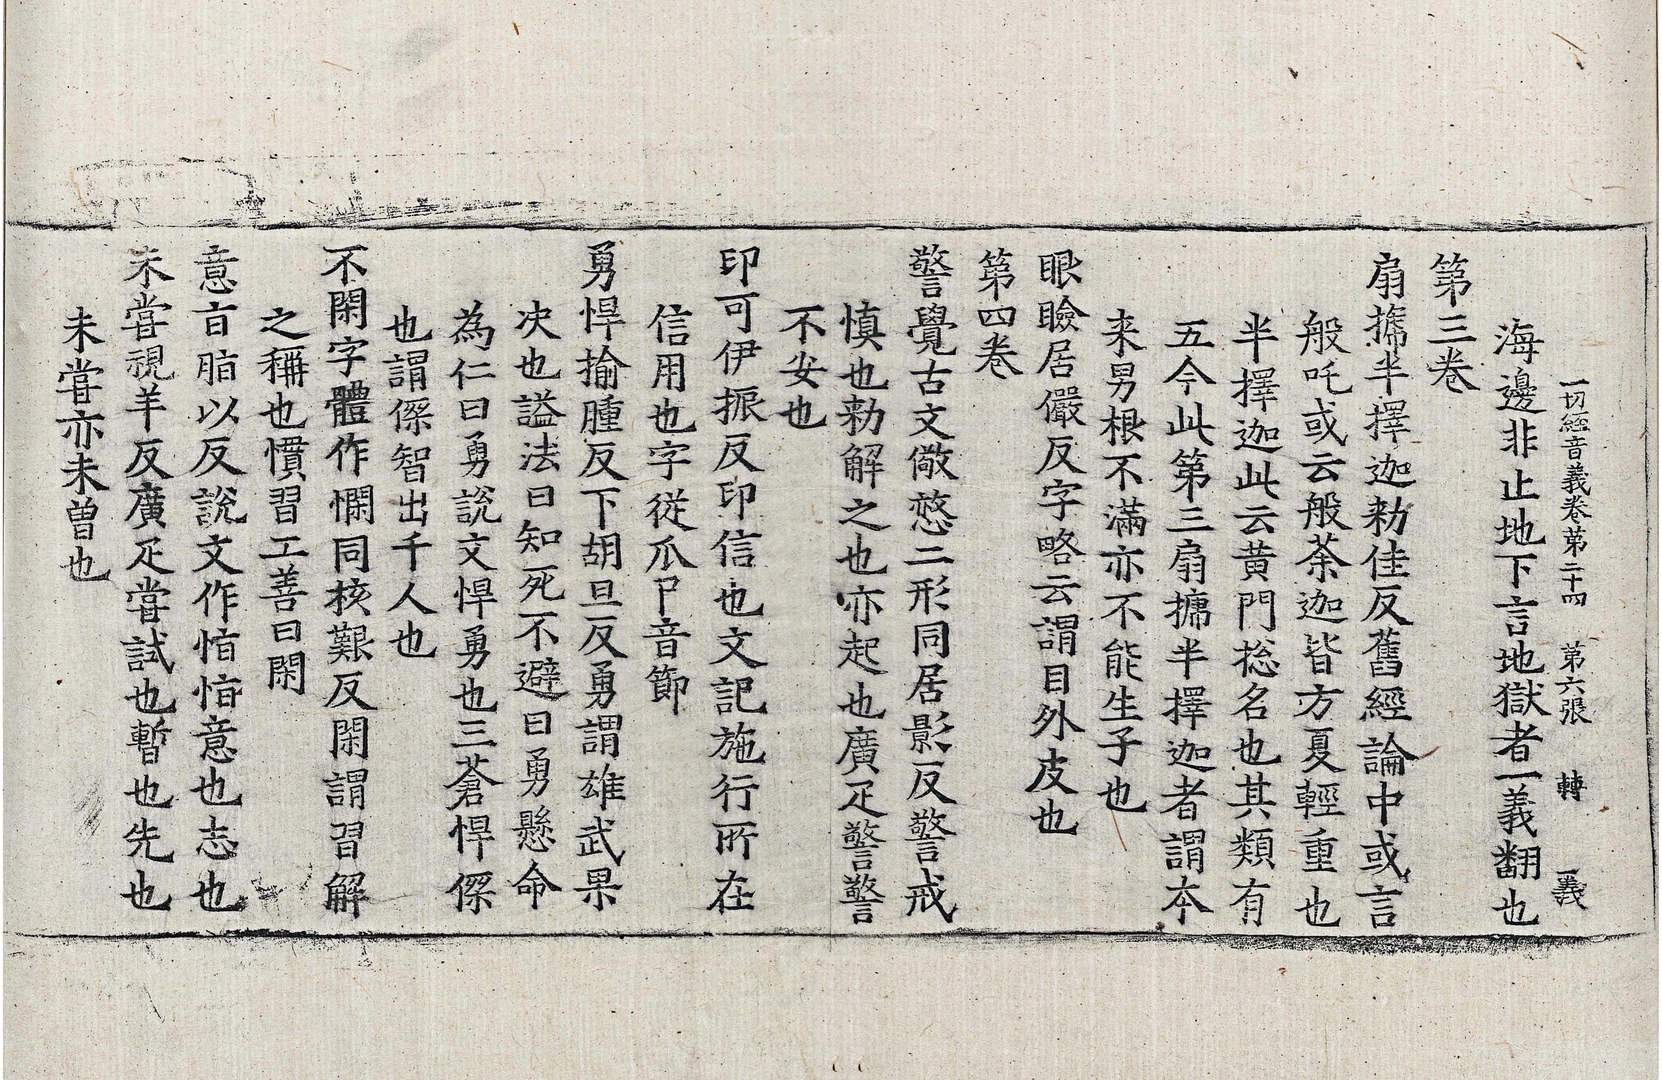 一切經音義卷第二十四 第六張 轉 義
海邊非止地下言地獄者一義翻也
第三卷
扇搋半擇迦勑佳反舊經論中或言
般吒或云般荼迦皆方夏輕重也
半擇迦此云黄門捴名也其類有
五今此第三扇搋半擇迦者謂夲
来男根不滿亦不能生子也
眼瞼居儼反字略云謂目外皮也
第四卷
警覺古文儆憼二形同居影反警戒
慎也勑解之也亦起也廣疋警警
不安也
印可伊振反印信也文記施行所在
信用也字從爪卩音節
勇悍揄腫反下胡旦反勇謂雄武果
决也謚法曰知死不避曰勇懸命
為仁曰勇說文悍勇也三蒼悍傑
也謂傑智出千人也
不閑字體作憪同核艱反閑謂習解
之稱也慣習工善曰閑
意㫖脂以反說文作恉恉意也志也
未甞視羊反廣疋甞試也暫也先也
未甞亦未曽也